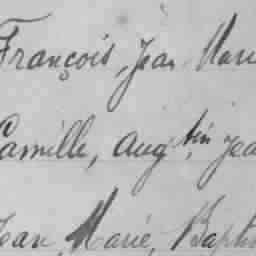 François, Jean Marie
Camille, Aug.tin Jea
Jean Marie, Baptis